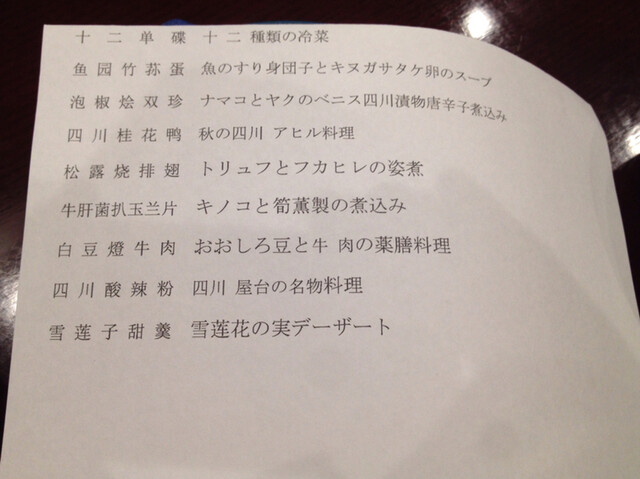 十 二 单 碟 十 二 種類の冷菜
鱼 园 竹 荪 蛋 魚のすり身団子とキヌガサタケ卵のスープ
泡 椒 烩 双 珍 ナマコとヤクのペニス四川漬物唐辛子煮込み
四 川 桂 花 鸭 秋の四川 アヒル料理
松 露 烧 排 翅 トリュフとフカヒレの姿煮
牛肝菌扒玉兰片 キノコと筍薫製の煮込み
白 豆 燈 牛 肉 おおしろ豆と牛 肉の薬膳料理
四 川 酸 辣 粉 四川 屋台の名物料理
雪 莲 子 甜 羹 雪莲花の実デーザート